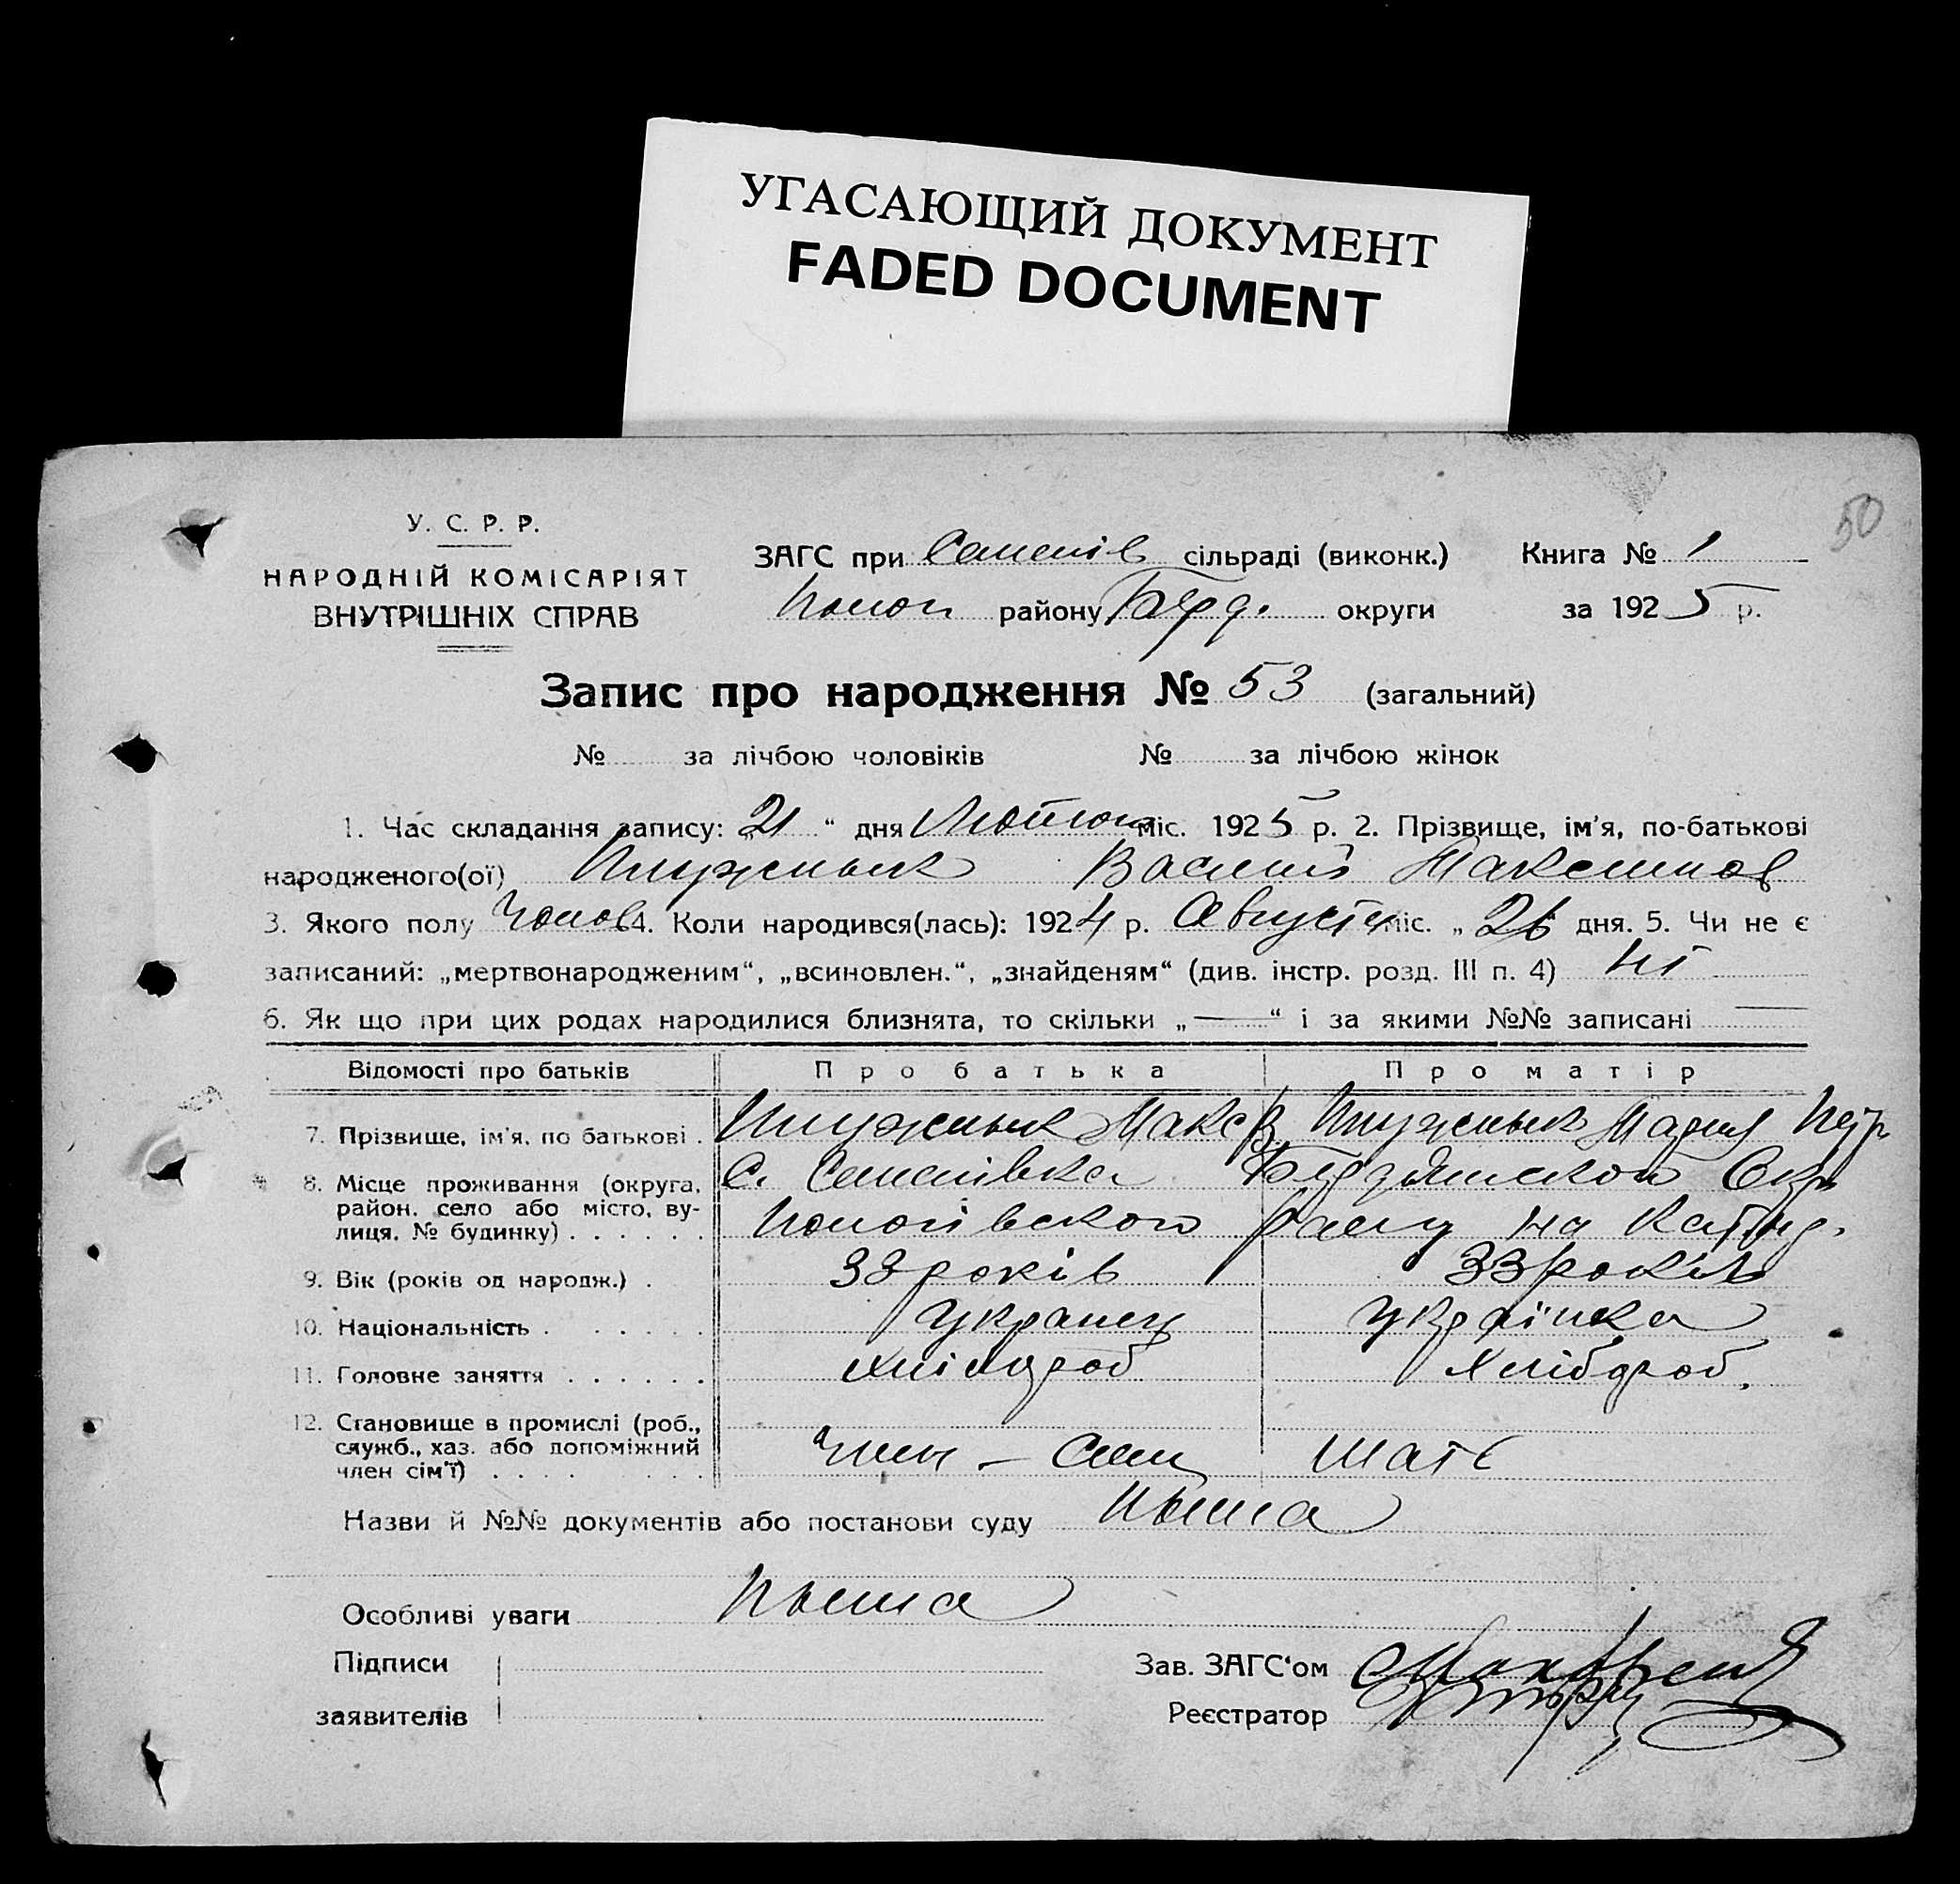 УГАСАЮЩИЙ ДОКУМЕНТ
FADED DOCUMENT
50
У. С. Р. Р.
НАРОДНІЙ КОМІСАРІЯТ
ВНУТРІШНІХ СПРАВ
ЗАГС при Семенів сільраді (виконк.) Книга № 1
Полог району Берд. округи за 1925 р.
Запис про народження № 53 (загальний)
№ за лічбою чоловіків № за лічбою жінок
1. Час складання запису: „21“ дня Лютого міс. 1925 р. 2. Прізвище, ім'я, по-батькові
народженого(ої) Плужнык Василий Максимов
3. Якого полу Чолов 4. Коли народився(лась): 1924 р. Августа міс. „26 дня. 5. Чи не є
записаний: „мертвонародженим“, „всиновлен.“, „знайденям“ (див. інстр. розд. III п. 4) ні
6. Як що при цих родах народилися близнята, то скільки „—“ і за якими №№ записані —
Відомості про батьків Про батька Про матір
7. Прізвище, ім'я, по батькові . Плужнык Макс Плужнык Мария Петр
8. Місце проживання (округа, С. Семенівка Бердянской Окр
район, село або місто, ву-
лиця, № будинку) . . . . . . Пологівского
9. Вік (років од народж.) . 38 років 33 років
10. Національність . . . . . . Укранец Українка
11. Головне заняття . . . . . . Хлібороб.
12. Становище в промислі (роб.,
служб., хаз. або допоміжний
член сім'ї) . . . . . . член - семи мать
Назви й №№ документів або постанови суду Ныма
Особливі уваги Ныма
Підписи Зав. ЗАГС'ом
заявителів Реєстратор